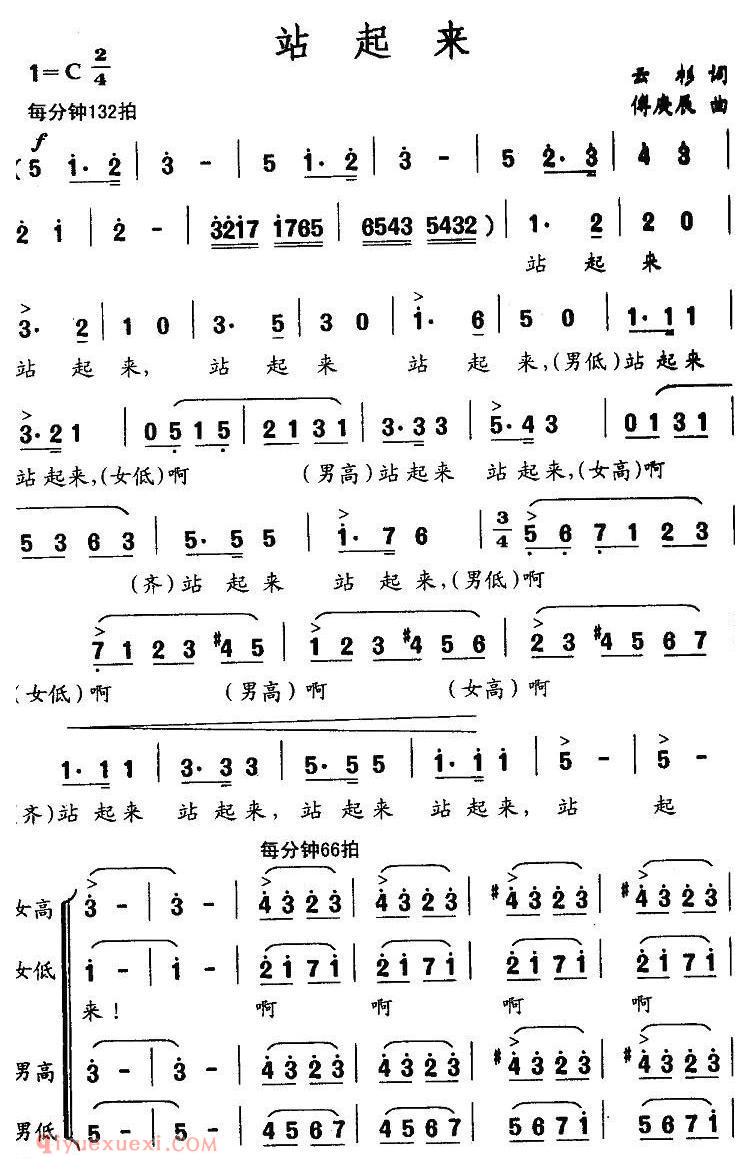 站起来
1=C 2/4
云杉 词
每分钟132拍
傅庚辰 曲
f
(5 1· 2 | 3 - | 5 1· 2 | 3 - | 5 2· 3 | 4 3 |
2 1 | 2 - | 3217 1765 | 6543 5432 ) | 1· 2 | 2 0 |
站 起 来
3· 2 | 1 0 | 3· 5 | 3 0 | 1· 6 | 5 0 | 1· 1 1 |
站 起 来, 站 起 来 站 起 来,(男低)站起来
3· 2 1 | 0 5 1 5 | 2 1 3 1 | 3· 3 3 | 5· 4 3 | 0 1 3 1 |
站起来,(女低)啊 (男高)站起来 站起来,(女高)啊
5 3 6 3 | 5· 5 5 | 1· 7 6 | 3/4 5 6 7 1 2 3 |
(齐)站 起 来 站 起 来,(男低)啊
7 1 2 3 #4 5 | 1 2 3 #4 5 6 | 2 3 #4 5 6 7 |
(女低)啊 (男高)啊 (女高)啊
1· 1 1 | 3· 3 3 | 5· 5 5 | 1· 1 1 | 5 - | 5 -
(齐)站 起 来 站 起 来, 站 起 来 站 起 来, 站 起
每分钟66拍
女高 3 - | 3 - | 4 3 2 3 | 4 3 2 3 | #4 3 2 3 | #4 3 2 3 |
女低 1 - | 1 - | 2 1 7 1 | 2 1 7 1 | 2 1 7 1 | 2 1 7 1 |
来! 啊 啊 啊 啊
男高 3 - | 3 - | 4 3 2 3 | 4 3 2 3 | #4 3 2 3 | #4 3 2 3 |
男低 5 - | 5 - | 4 5 6 7 | 4 5 6 7 | 4 5 6 7 | 4 5 6 7 |
qiyuexuexi.com